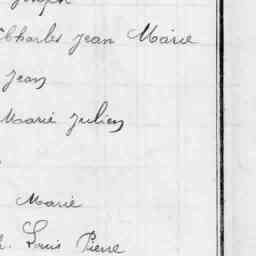 Joseph
Charles Jean Marie
Jean
Marie Julien
Marie
Louis Pierre